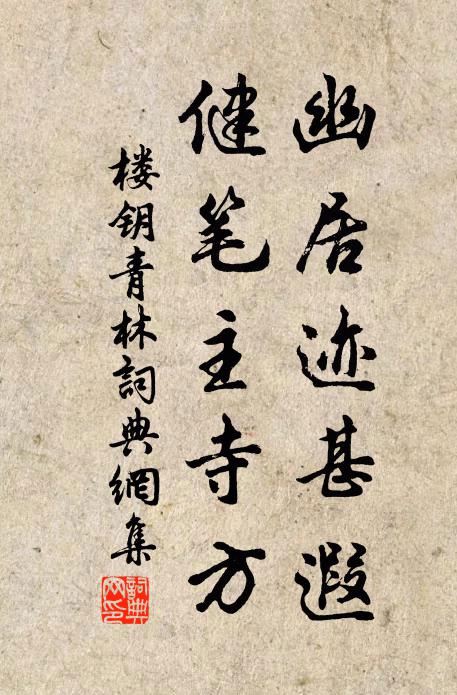 幽居迹甚遐
健笔主寺方
楼钥青林詞典網集
詞典网印